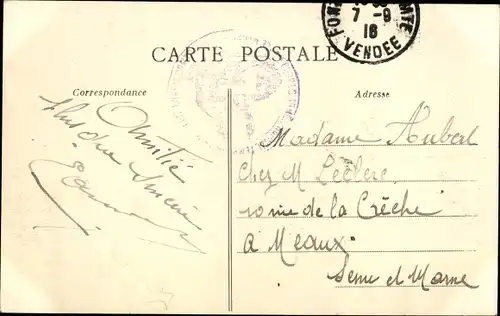 FON
MTE
7 -9
16
VENDEE
CARTE POSTALE
Correspondance
Adresse
Amitié
plus que sincère
Madame Aubert
Chez M Leclerc
10 rue de la Crèche
à Meaux
Seine et Marne